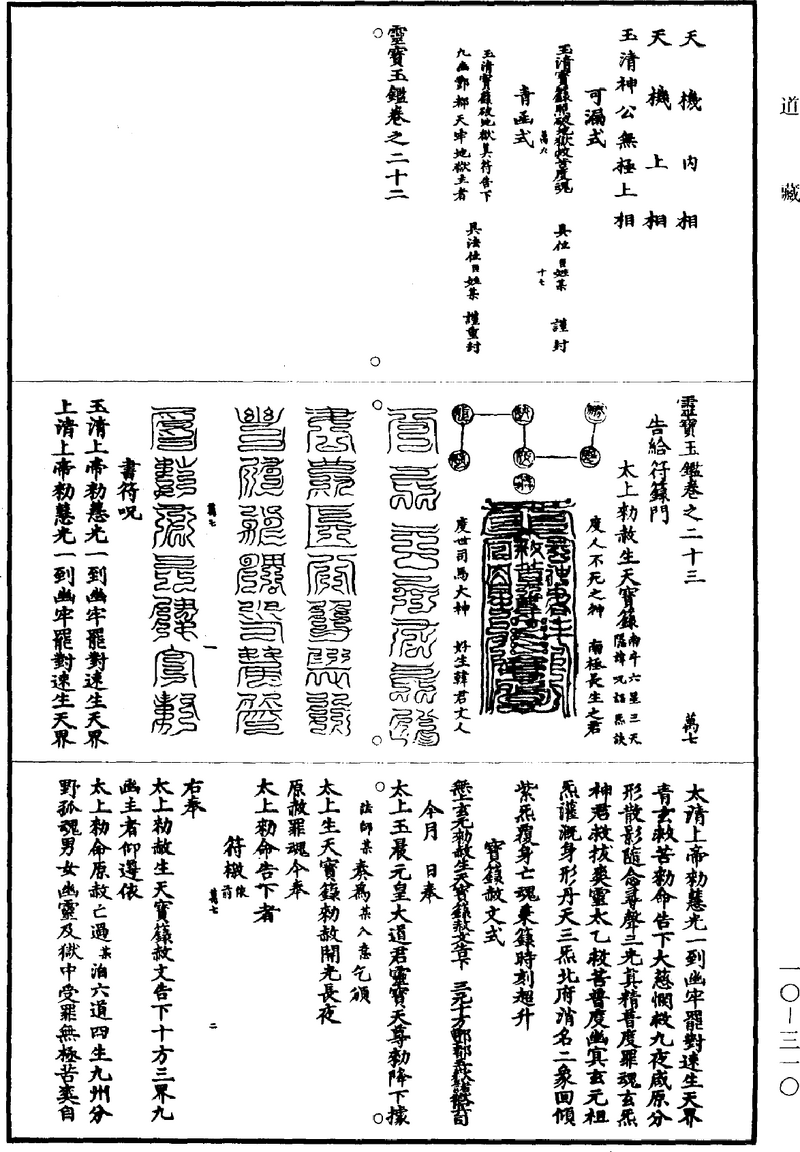 道藏
天機內相
天機上相
玉清神公無極上相
可漏式
玉清寶籙照破地獄救苦度魂 具位臣姓某 謹封
萬六
十七
青函式
玉清寶籙破地獄真符告下
九幽酆都天牢地獄主者 具法位臣姓某 謹重封
靈寶玉鑑卷之二十二
靈寶玉鑑卷之二十三 萬七
告給符籙門
太上勑赦生天寶籙
南斗六星三天
隱諱呪詔炁訣
度人不死之神 南極長生之君
度世司馬大神 好生韓君丈人
萬七
一
書符呪
玉清上帝勑慧光一到幽牢罷對速生天界
上清上帝勑慧光一到幽牢罷對速生天界
太清上帝勑慧光一到幽牢罷對速生天界
青玄救苦勑命告下大慈憫救九夜咸原分
形散影隨念尋聲三光真精普度罪魂玄炁
神君救拔爽靈太乙救苦普度幽冥玄元祖
炁灌溉身形丹天三炁北府消名二象回傾
紫炁覆身亡魂乗籙時刻超升
寶籙赦文式
今月 日奉
太上玉晨元皇大道君靈寶天尊勑降下據
法師某奏為某入意乞頒
太上生天寶籙勑赦開光長夜
原赦罪魂今奉
太上勑命告下者
符檄
右奉
萬七
二
太上勑赦生天寶籙赦文告下十方三界九
幽主者仰遵依
太上勑命原赦亡過某洎六道四生九州分
野孤魂男女幽靈及獄中受罪無極苦爽自
一〇—三一〇